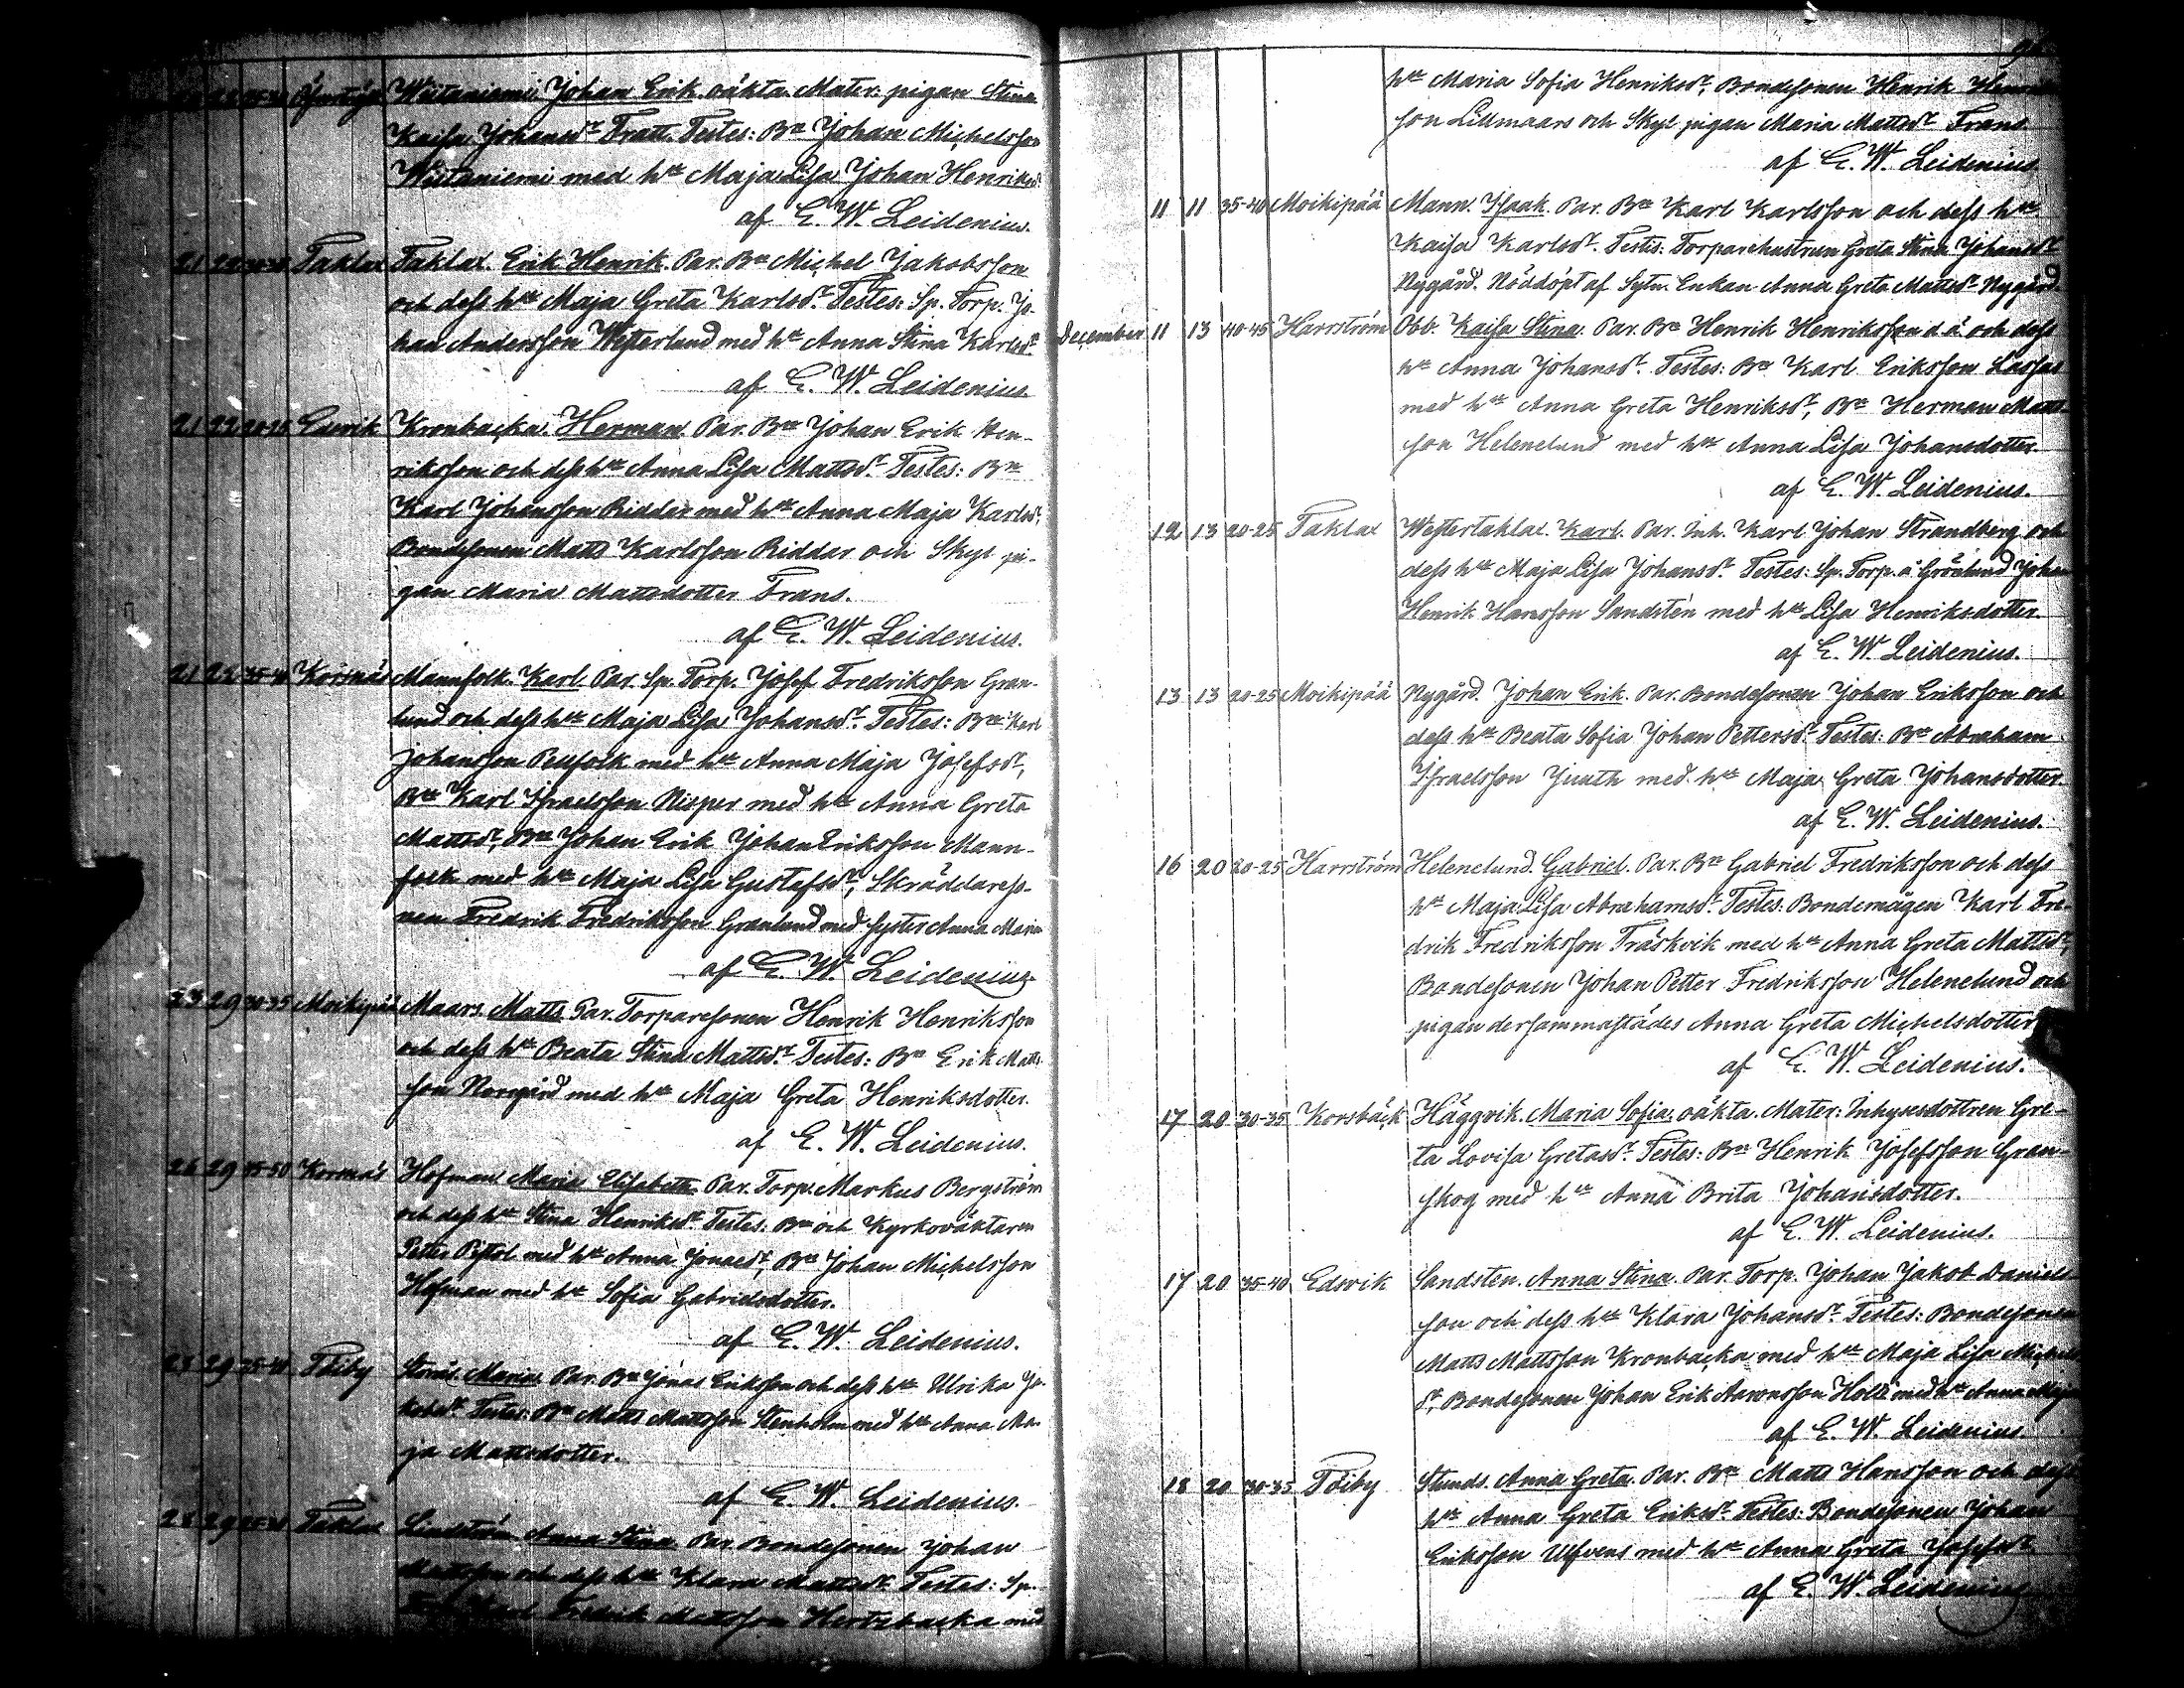 Westaniemi Johan Erik. oäkta. Mater: pigan Stina
Kaisa Johansdr Fratt. Testes: Bn Johan Michelsson
Westaniemi med hu Maja Lisa Johan Henriksdr
af E. W. Leidenius.
21 22 Taklax Taklax. Erik Henrik. Par. Bn Michel Jakobsson
och dess hu Maja Greta Karlsdr. Testes: Sp. Torp. Jo-
han Andersson Westerlund med hu Anna Stina Karlsdr
af E. W. Leidenius.
21 22 Edsvik Kronbacka. Herman. Par. Bn Johan Erik Hen-
riksson och dess hu Anna Lisa Mattsdr. Testes: Bn
Karl Johansson Riddar med hu Anna Maja Karlsdr,
Bondesonen Matts Karlsson Riddar och Skyl pi-
gan Maria Mattsdotter Frans.
af E. W. Leidenius.
21 22 35-40 Korsnäs Mannfolk. Karl. Par. Sp. Torp. Josef Fredriksson Gran-
lund och dess hu Maja Lisa Johansdr. Testes: Bn Karl
Johansson Penfolk med hu Anna Maja Josefsdr,
Bn Karl Israelsson Risper med hu Anna Greta
Mattsdr, Bn Johan Erik Johan Eriksson Mann-
folk med hu Maja Lisa Gustafsdr, Skräddareso-
nen Fredrik Fredriksson Granlund med syster Anna Maria
af E. W. Leidenius
23 29 30-35 Moikipää Maars. Matts. Par. Torparesonen Henrik Henriksson
och dess hu Beata Stina Mattsdr. Testes: Bn Erik Matts-
son Norrgård med hu Maja Greta Henriksdotter.
af E. W. Leidenius.
26 29 45-50 Korsnäs Hofman. Maria Elisabeth. Par. Torp. Markus Bergström
och dess hu Stina Henriksdr. Testes: Bn och Kyrkoväktaren
Petter Pistol med hu Anna Jonasdr, Bn Johan Michelsson
Hofman med hu Sofia Gabrielsdotter.
af E. W. Leidenius.
28 29 35-40 Töiby Storås. Maria. Par. Bn Jonas Eriksson och dess hu Ulrika Ja-
kobsdr. Testes: Bn Matts Mattsson Stenholm med hu Anna Ma-
ja Mattsdotter.
af E. W. Leidenius.
28 29 Taklax Lindström. Anna Stina. Par. Bondesonen Johan
Mattsson och dess hu Klara Mattsdr. Testes: Sp.
Fredrik Mattsson Hertsbacka med
hu Maria Sofia Henriksdr, Bondesonen Henrik Henrik-
son Lillmaars och Skyl pigan Maria Mattsdr Frans.
af E. W. Leidenius.
11 11 35-40 Moikipää Mann. Isaak. Par. Bn Karl Karlsson och dess hu
Kaisa Karlsdr. Testis: Torparehustrun Greta Stina Johansdr
Nygård. Nöddöpt af Sytn. Enkan Anna Greta Mattsdr Nygård.
December 11 13 40-45 Harrström Obb. Kaisa Stina. Par. Bn Henrik Henriksson d.ä. och dess
hu Anna Johansdr. Testes: Bn Karl Eriksson Lassas
med hu Anna Greta Henriksdr, Bn Herman Matts-
son Helenelund med hu Anna Lisa Johansdotter.
af E. W. Leidenius.
12 13 20-25 Taklax Westertaklax. Karl. Par. Inh. Karl Johan Strandberg och
dess hu Maja Lisa Johansdr. Testes: Sp. Torp. å Grönlund Johan
Henrik Hansson Sandstén med hu Lisa Henriksdotter.
af E. W. Leidenius.
13 13 20-25 Moikipää Nygård. Johan Erik. Par. Bondesonen Johan Eriksson och
dess hu Beata Sofia Johan Pettersdr. Testes: Bn Abraham
Israelsson Juath med hu Maja Greta Johansdotter.
af E. W. Leidenius.
16 20 20-25 Harrström Helenelund. Gabriel. Par. Bn Gabriel Fredriksson och dess
hu Maja Lisa Abrahamsdr. Testes: Bondemågen Karl Fre-
drik Fredriksson Träskvik med hu Anna Greta Mattsdr,
Bondesonen Johan Petter Fredriksson Helenelund och
pigan dersammastädes Anna Greta Michelsdotter
af E. W. Leidenius.
17 20 30-35 Korsbäck Häggvik. Maria Sofia. oäkta. Mater: Inhysesdottren Gre-
ta Lovisa Gretasdr. Testes: Bn Henrik Josefsson Gran-
skog med hu Anna Brita Johansdotter.
af E. W. Leidenius.
17 20 35-40 Edsvik Sandsten. Anna Stina. Par. Torp. Johan Jakob Daniels-
son och dess hu Klara Johansdr. Testes: Bondesonen
Matts Mattsson Kronbacka med hu Maja Lisa Michels-
dr, Bondesonen Johan Erik Aaronsson Holts med hu Anna Maja
af E. W. Leidenius
18 20 30-35 Töiby Stunds. Anna Greta. Par. Bn Matts Hansson och dess
hu Anna Greta Eriksdr. Testes: Bondesonen Johan
Eriksson Ulfvens med hu Anna Greta Josefsdr
af E. W. Leidenius